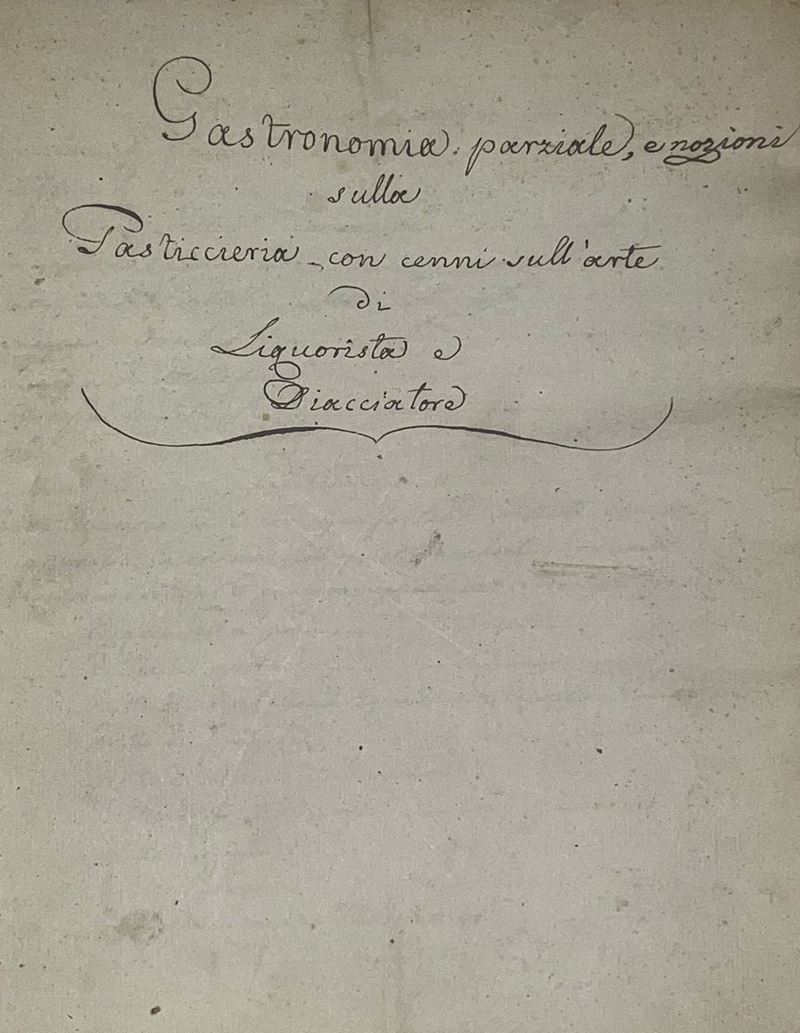 Gastronomia parziale, e nozioni
sulla
Pasticcieria - con cenni sull'arte
di
Liquorista e
Diacciatore